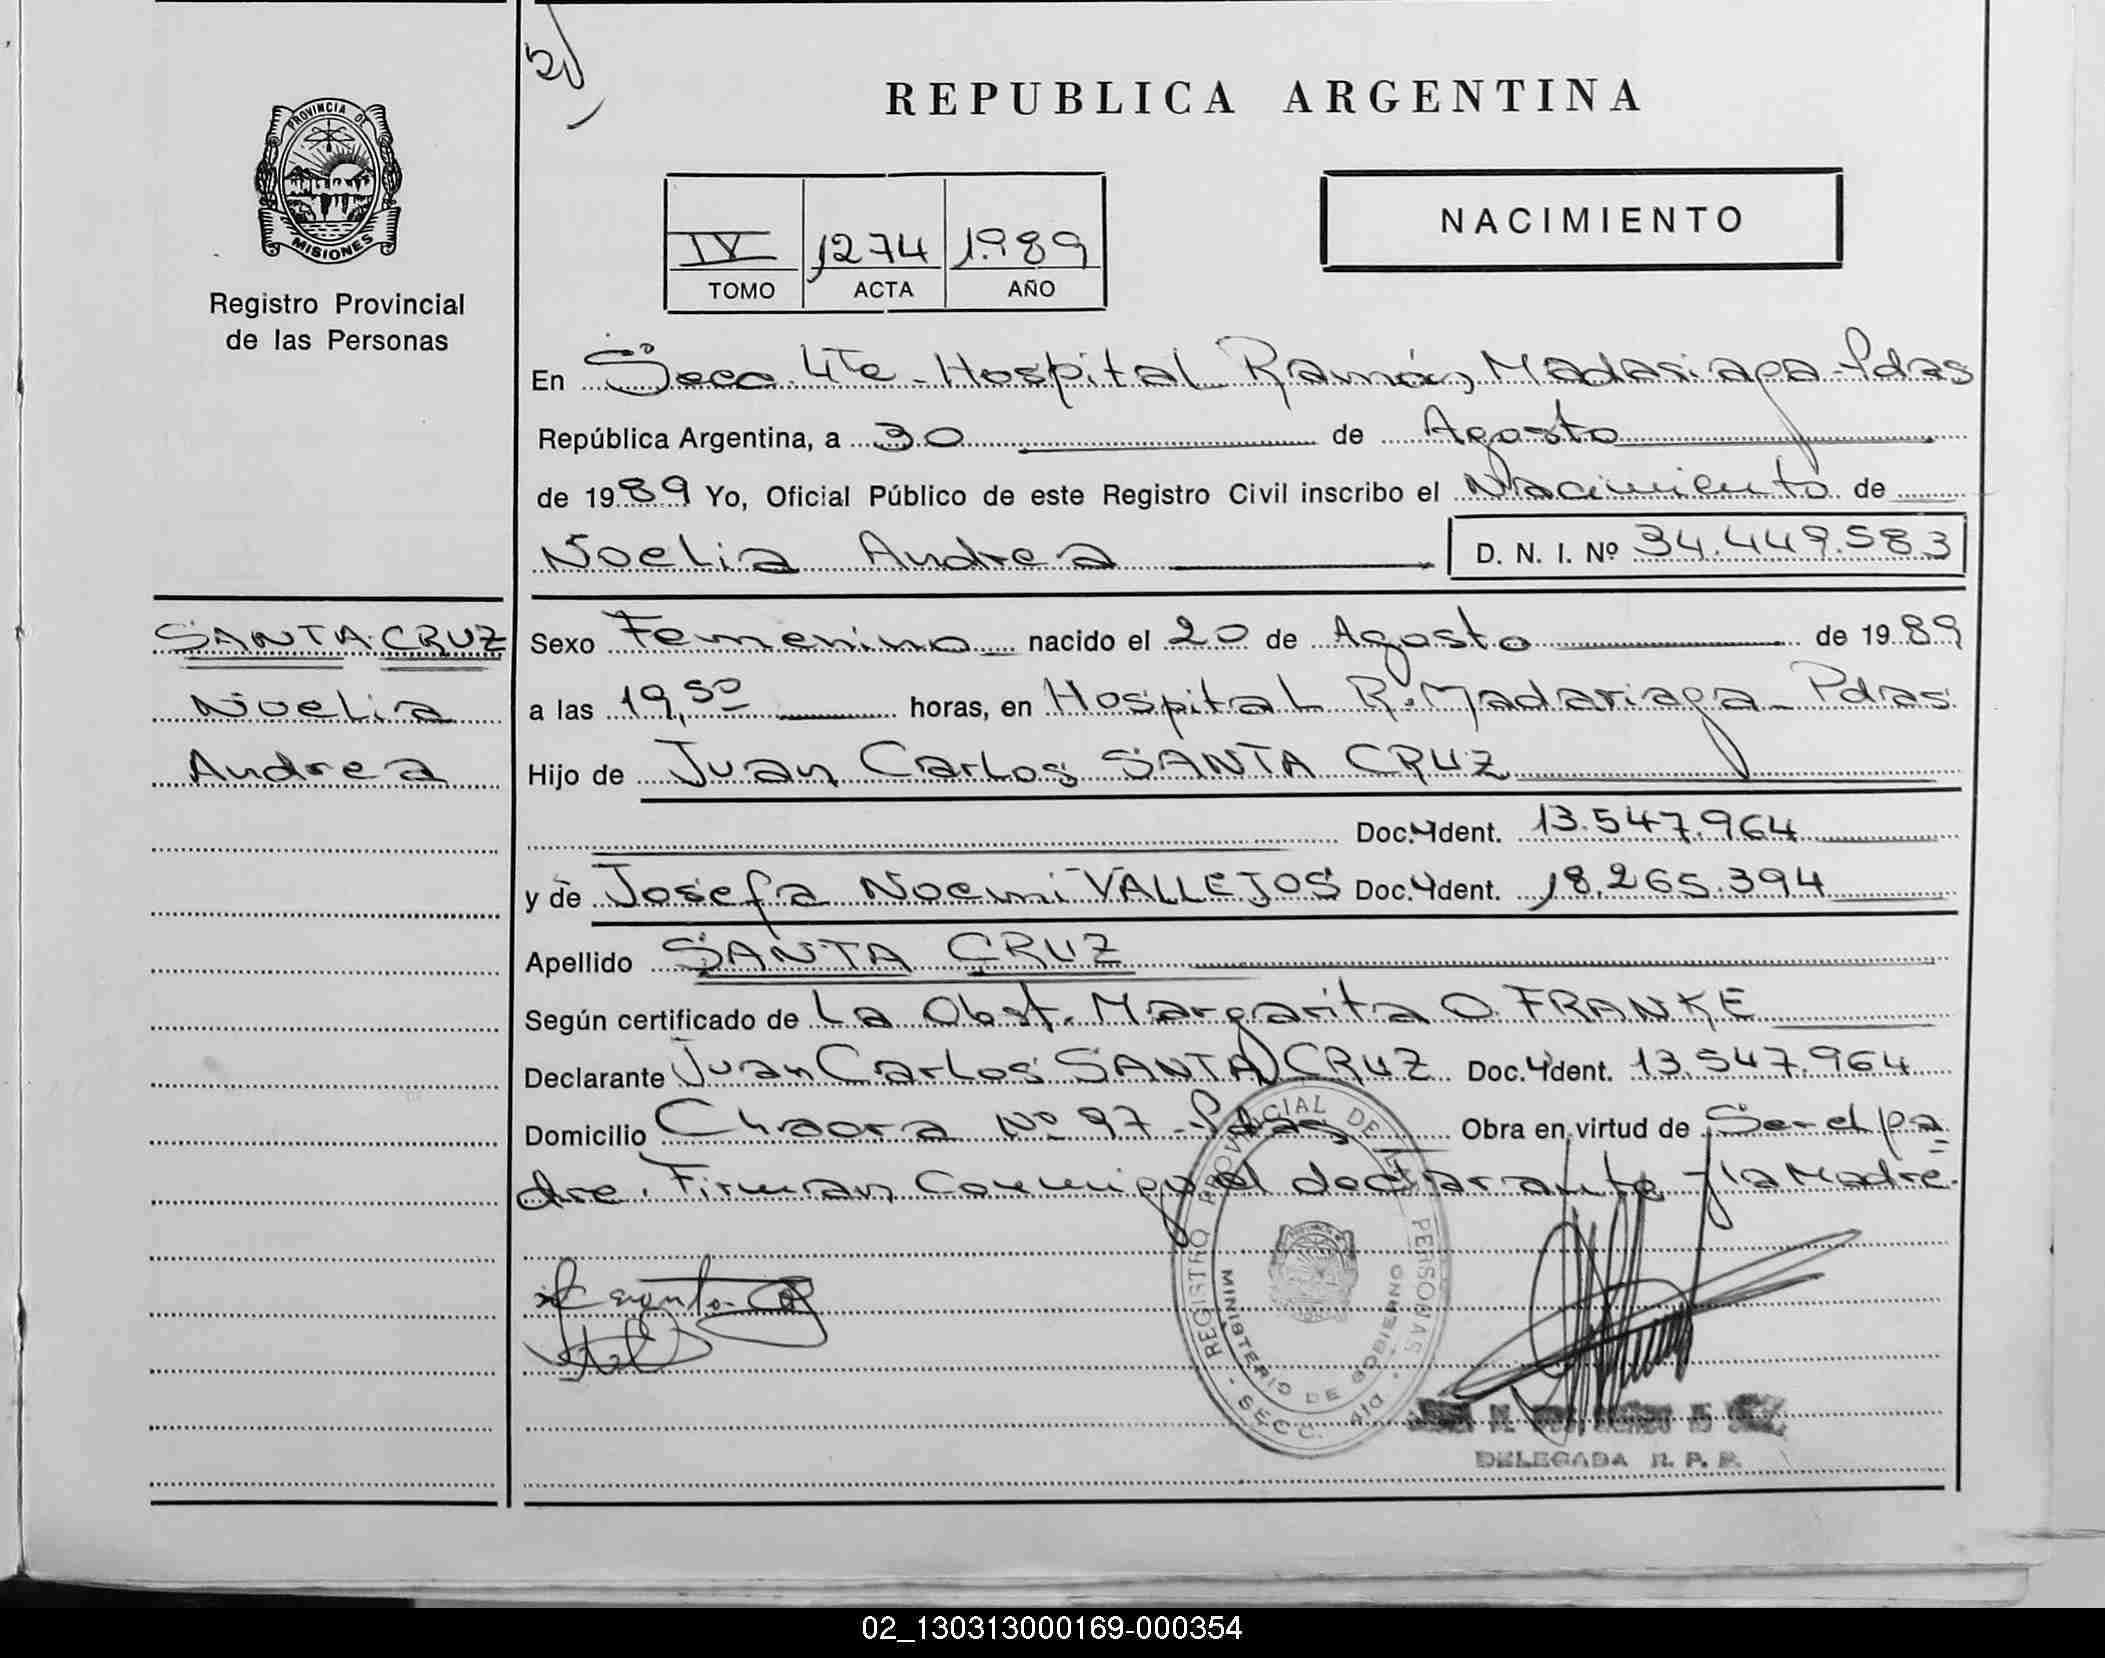 REPUBLICA ARGENTINA
PROVINCIA DE
MISIONES
Registro Provincial
de las Personas
NACIMIENTO
IV 1274 1.989
TOMO ACTA AÑO
En Secc. 4Ta - Hospital Ramón Madariaga - Pdas
República Argentina, a 30 de Agosto
de 1989 Yo, Oficial Público de este Registro Civil inscribo el Nacimiento de
Noelia Andrea D. N. I. Nº 34.449.583
SANTA CRUZ
Noelia
Andrea
Sexo Femenino nacido el 20 de Agosto de 1989
a las 19,50 horas, en Hospital R. Madariaga - Pdas.
Hijo de Juan Carlos SANTA CRUZ
Doc. Ident. 13.547.964
y de Josefa Noemi VALLEJOS Doc. Ident. 18.265.394
Apellido SANTA CRUZ
Según certificado de La Obst. Margarita O. FRANKE
Declarante Juan Carlos SANTA CRUZ Doc. Ident. 13.547.964
Domicilio Chacra Nº 97 - Pdas Obra en virtud de Ser el pa=
dre. Firman Conmigo el declarante y la Madre.
REGISTRO PROVINCIAL DE LAS PERSONAS
MINISTERIO DE GOBIERNO
- SECC. 4ta -
DELEGADA R. P. P.
02_130313000169-000354